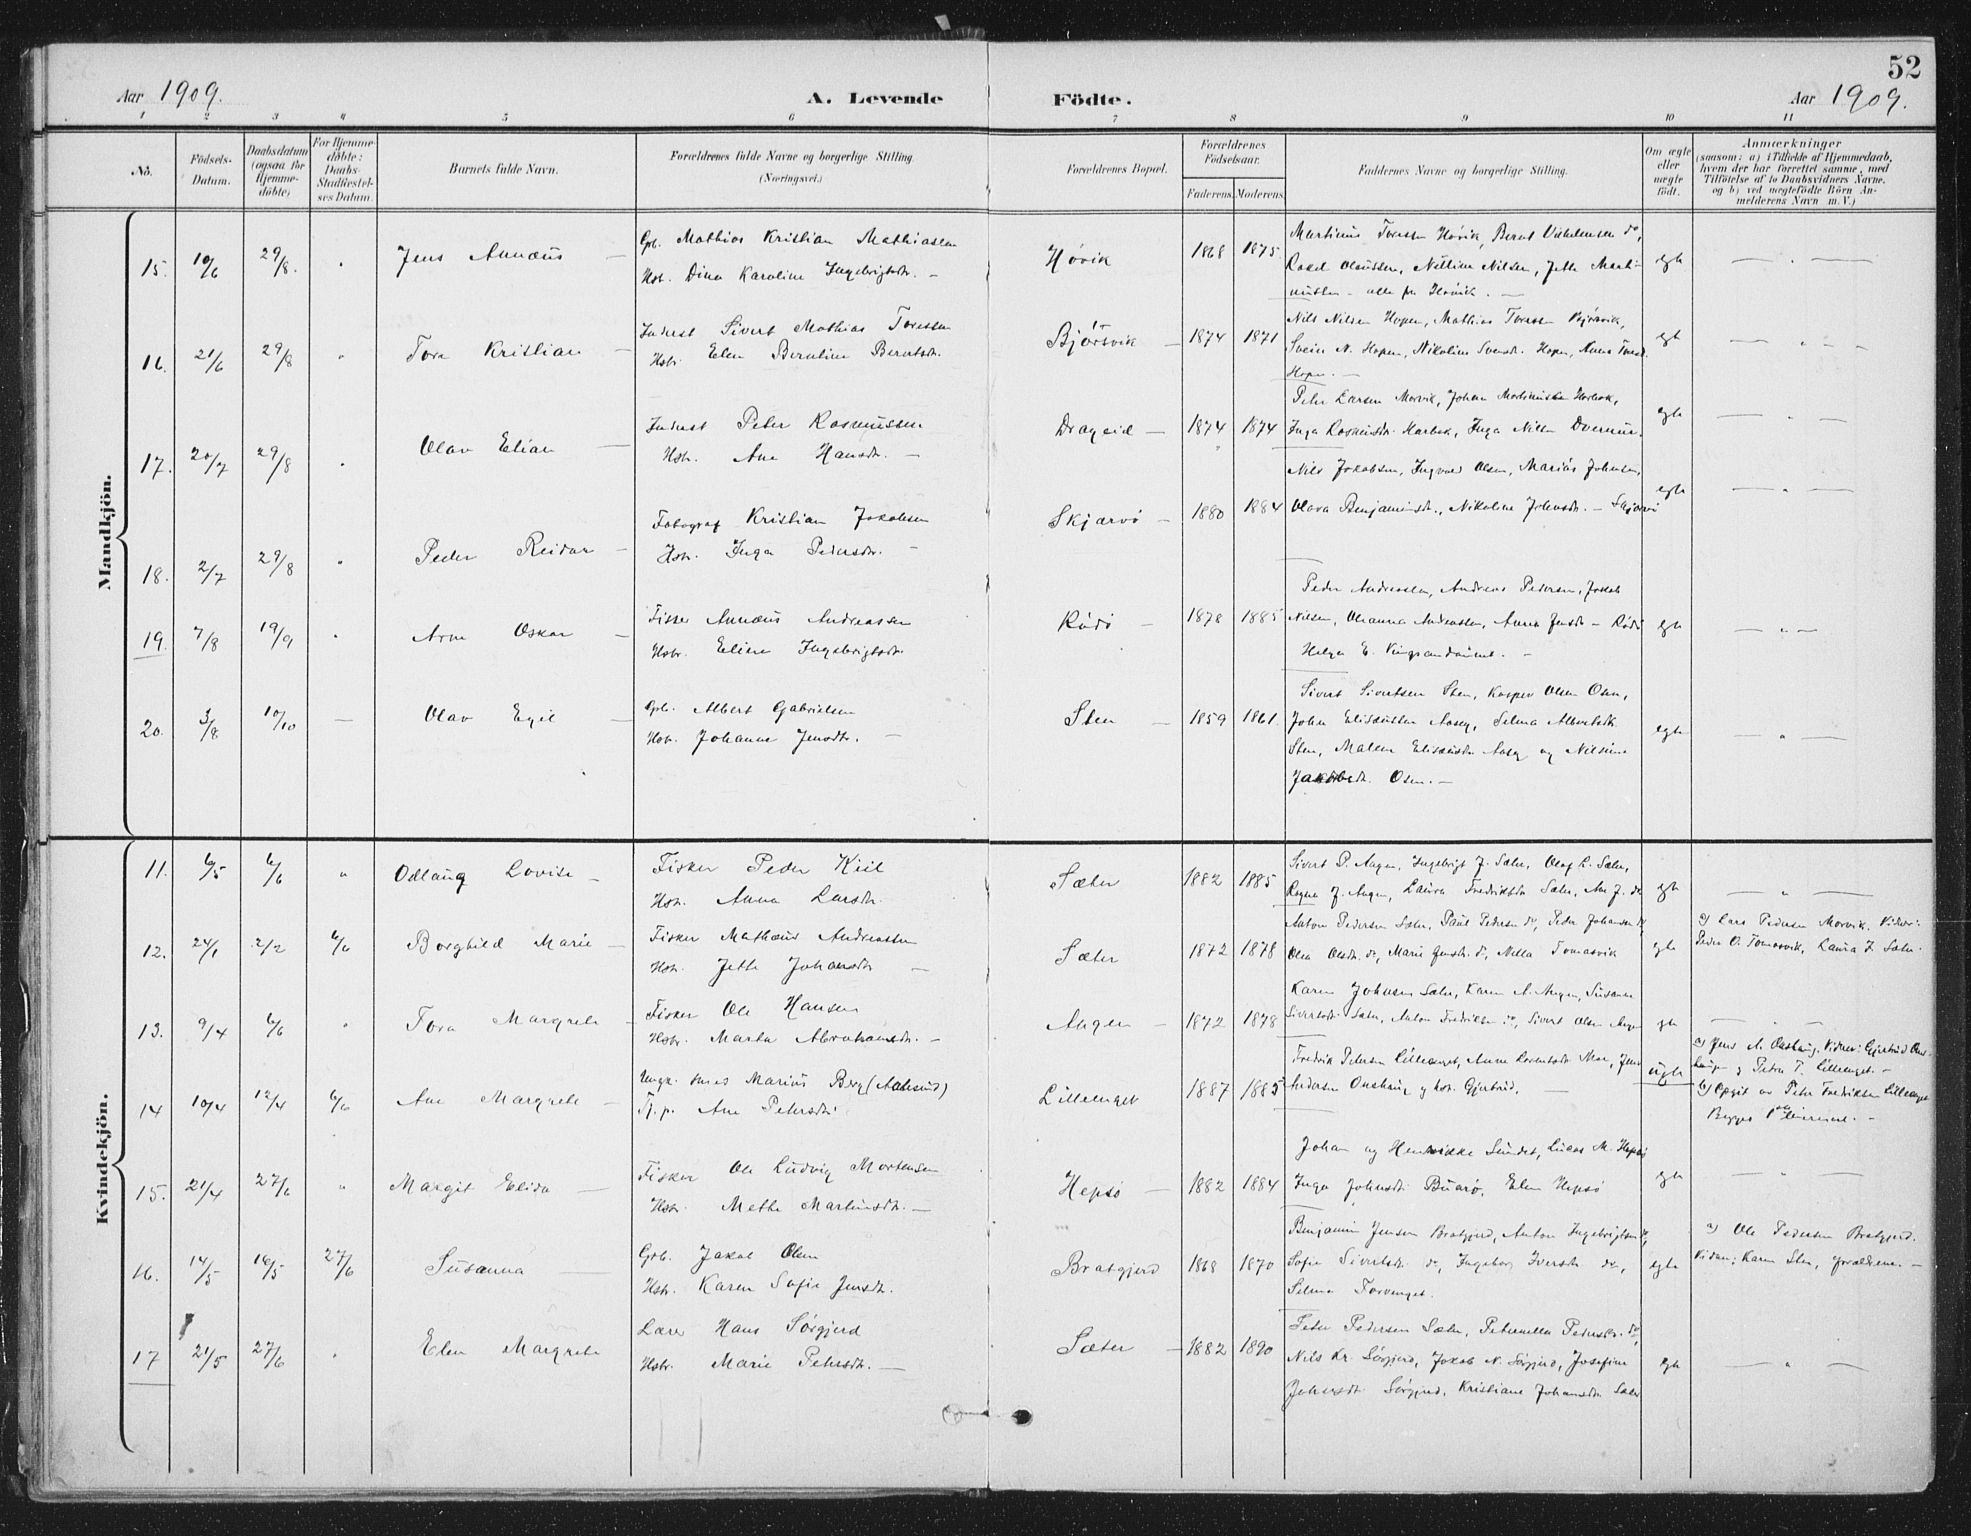 52
Aar 1909.
A. Levende Födte.
Aar 1909.
1 2 3 4 5 6 7 8 9 10 11
No.
Födsels-
Datum.
Daabsdatum
(ogsaa for
Hjemme-
döbte)
For Hjemme-
döbte:
Daabs-
Stadfæstel-
ses Datum.
Barnets fulde Navn.
Forældrenes fulde Navne og borgerlige Stilling.
(Næringsvei.)
Forældrenes Bopæl.
Forældrenes
Födselsaar.
Faderens. Moderens.
Faddernes Navne og borgerlige Stilling.
Om ægte
eller
uægte
födt.
Anmærkninger
(saasom: a) i Tilfælde af Hjemmedaab,
hvem der har forrettet samme, med
Tilföielse af to Daabsvidners Navne,
og b) ved uægtefödte Börn An-
melderens Navn m. V.)
Mandkjön.
15. 10/6 29/8. " Jens Annæus
Gbr. Mathias Kristian Mathiassen
Hst. Dina Karoline Ingebrigtsdtr. —
Høvik 1868 1875.
Martinus Toressen Høvik, Bernt do,
Rakel Olaussen, Nilsen, Jette Marti-
nussen - alle fra Høvik. —
egte — " —
16. 21/6 29/8 " Tore Kristian —
Inderst Sivert Mathias Toressen
Hstr. Elen Berntine Berntsdtr.
Bjørsvik — 1874 1871
Nils Nilsen Hopen, Mathias Toressen Bjørsvik,
Svein N. Hopen, Nikoline Svensdtr. Hopen, Anna
Hopen. —
egt — " —
17. 20/7 29/8 " Olav Elian —
Inderst Peter Rasmussen
Hstr. Ane Hansdtr. —
Drageid — 1874 1874
Peter Larsen Morvik, Johan Martinussen Harbak,
Inga Rasmusdtr. Harbak, Inga Nilsen
egte — " —
18. 2/7 29/8 " Peder Reidar —
Fotograf Kristian Jakobsen
Hstr. Inga Pedersdtr. —
Skjærvø — 1880 1884
Nils Jakobsen, Ingvald Olsen, Marius Johnsen,
Olava Benjaminsdtr., Nikoline Johnsdtr. — Skjærvø
egte — " —
19. 7/8 19/9 " Arne Oskar —
Fisker Annæus Andreassen
Hstr. Eline Ingebrigtsdtr.
Rødø — 1878 1885
Peder Andreassen, Andreas Pedersen, Jakob
Nilsen, Johanna Andreassen, Anna Jensdtr — Rødø
Helga E. —
egte — " —
20. 3/8 10/10 — Olav Egil —
Gbr. Albert Gabrielsen
Hstr. Johanne Jensdtr. —
Sten — 1859 1861.
Sivert Sivertsen Sten, Kasper Olsen Osen,
John Elisæussen Aasey, Selma Albertsdtr.
Sten, Malene Elisæusdtr. Aasey og Nilsine
Jakobsdtr. Osen. —
egte — " —
Kvindekjön.
11. 6/5 6/6 " Odlaug Lovise —
Fisker Peder Kiil
Hstr. Anna Larsdtr.
Sæter 1882 1885
Sivert P. Angen, Ingebrigt J. Sæter, Olaf L. Sæter,
Ragna J. Angen, Laura Fredriksdtr Sæter, Ane J. do
egte — " —
12. 24/1 2/2 6/6 Borghild Marie —
Fisker Mathæus Andreassen
Hstr. Jette Johansdtr —
Sæter 1872 1878
Anton Pedersen Sæter, Paul Pedersen do, Peter Johansen do,
Olea Olsdtr. do, Marie Jensdtr. do, Nella Tomasvik
egte
a) Lars Pedersen Morvik. Vidner:
Peder O. Tomasvik, Laura F. Sæter.
13. 9/4 6/6 " Tora Margrete —
Fisker Ole Hansen
Hstr. Marta Abrahamsdtr. —
Angen — 1872 1878
Karen Johnsen Sæter, Karen A. Angen, Susanna
Sivertsdtr. Sæter, Anton Fredriksen do, Sivert Olsen Angen
egte — " —
14 10/4 12/4 6/6 Ane Margrete —
Ungk. Marius Berg (Aalesund)
Tj. p. Ane Petersdtr.
Lilleenget 1887 1885
Fredrik Petersen Lilleenget, Anne Mar, Jens
Andersen Onshaug og hst. Gjertrud. —
uegte
a) Jens A. Onshaug. Vidner: Gjertrud Ons-
haug og Petra T. Lilleenget. —
b) Opgit av Peter Fredriksen Lilleenget
15. 21/4 27/6 " Margit Elida —
Fisker Ole Ludvig Mortensen
Hstr. Mette Martinsdtr. —
Hepsø — 1882 1884
Johan og Henrikke Sundet, Lucas M. Hepsø
Inga Johnsdtr Buarø, Elen Hepsø
egte — " —
16. 14/5 16/5 27/6 Susanna —
Gbr. Jakob Olsen
Hstr. Karen Sofie Jensdtr.
Bratgjerd 1868 1870
Benjamin Jensen Bratgjerd, Anton Ingebrigtsen do,
Sofie Sivertsdtr. do, Ingeborg Iversdtr do,
Selma Torvenget.
egte
a) Ole Pedersen Bratgjerd.
Vidner: Karen Sten, forældrene. —
17 21/5 27/6 " Elen Margrete
Lærer Hans Sørgjerd
Hstr. Marie Petersdtr. —
Sæter — 1882 1890
Peter Pedersen Sæter, Petronella Pedersdtr. do,
Nils Kr. Sørgjerd, Jakob N. Sørgjerd, Josefine
Johnsdtr Sørgjerd, Kristiane Johansdtr Sæter
egte — " —